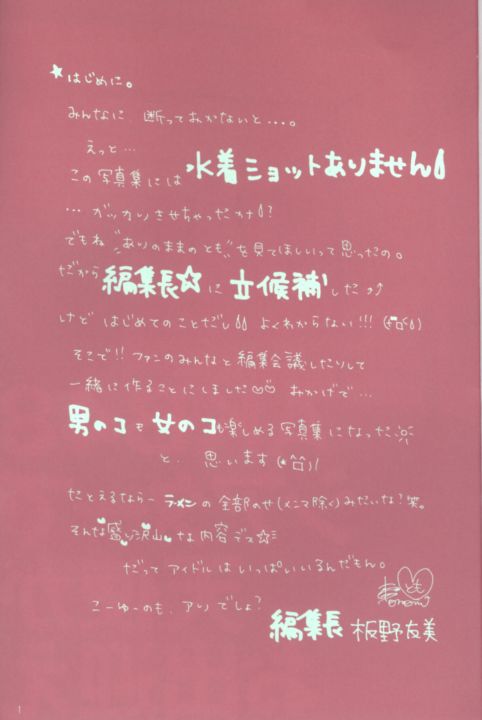 ★はじめに。
みんなに、断っておかないと…。
えっと…
この写真集には水着ショットありません
…ガッカリさせちゃったカナ?
でもね"ありのままのとも"を見てほしいって思ったの。
だから編集長☆に立候補したョ
けどはじめてのことだし よくわからない!!!
そこで!! ファンのみんなと編集会議したりして
一緒に作ることにしました♡♡ おかげで…
男のコも女のコも楽しめる写真集になった
と、思います
たとえるならー ラーメンの全部のせ(メンマ除く)みたいな?笑。
そんな盛り沢山な内容デス☆
だってアイドルはいっぱいいるんだもん。
こーゆーのも、アリでしょ?
とも
編集長 板野友美
1